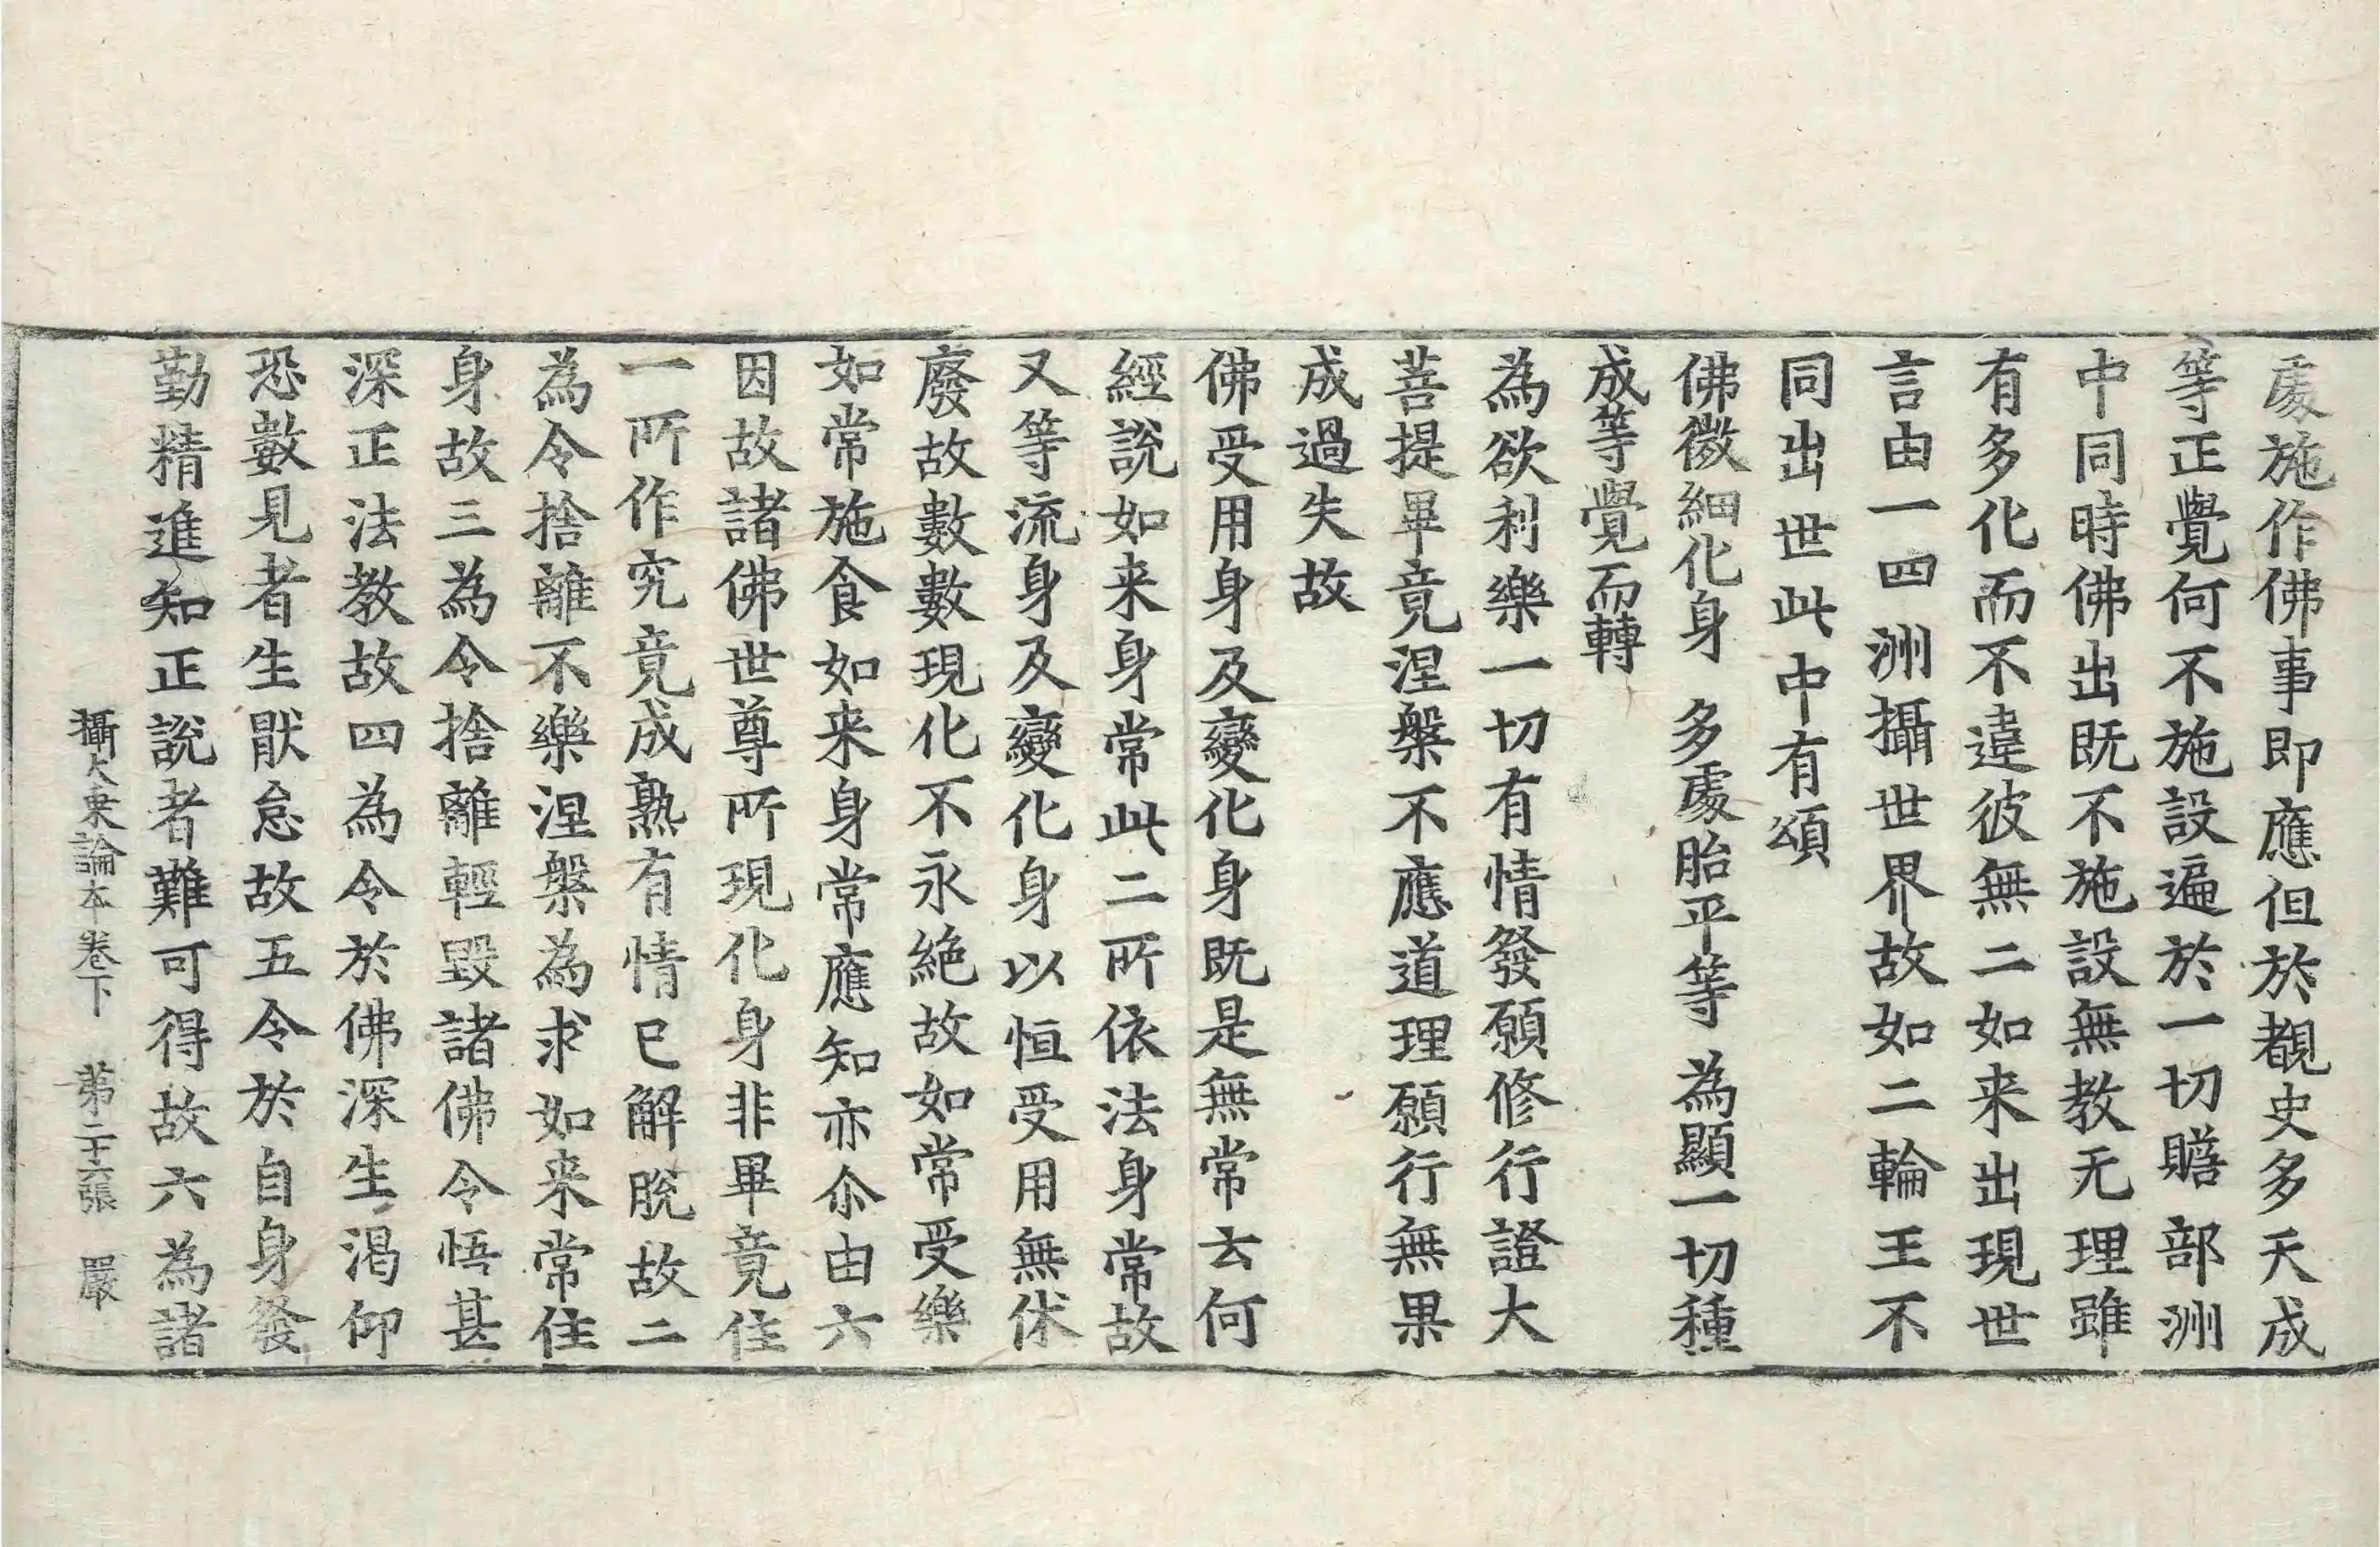 處施作佛事即應但於覩史多天成
等正覺何不施設遍於一切贍部洲
中同時佛出既不施設無教无理雖
有多化而不違彼無二如来出現世
言由一四洲攝世界故如二輪王不
同出世此中有頌
佛微細化身　多處胎平等　為顯一切種
成等覺而轉
為欲利樂一切有情發願修行證大
菩提畢竟涅槃不應道理願行無果
成過失故
佛受用身及變化身既是無常云何
經說如来身常此二所依法身常故
又等流身及變化身以恒受用無休
廢故數數現化不永絕故如常受樂
如常施食如来身常應知亦尒由六
因故諸佛世尊所現化身非畢竟住
一所作究竟成熟有情已解脫故二
為令捨離不樂涅槃為求如来常住
身故三為令捨離輕毀諸佛令悟甚
深正法教故四為令於佛深生渴仰
恐數見者生猒怠故五令於自身發
勤精進知正說者難可得故六為諸
攝大乗論本卷下　第二十六張　嚴